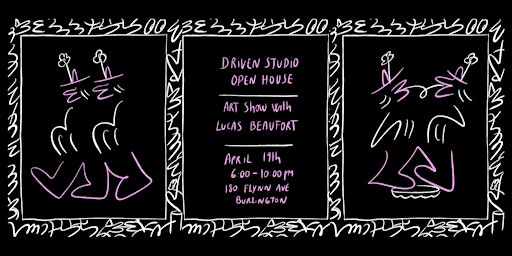 DRIVEN STUDIO
OPEN HOUSE
ART SHOW WITH
LUCAS BEAUFORT
APRIL 19th
6:00-10:00 PM
180 FLYNN AVE
BURLINGTON